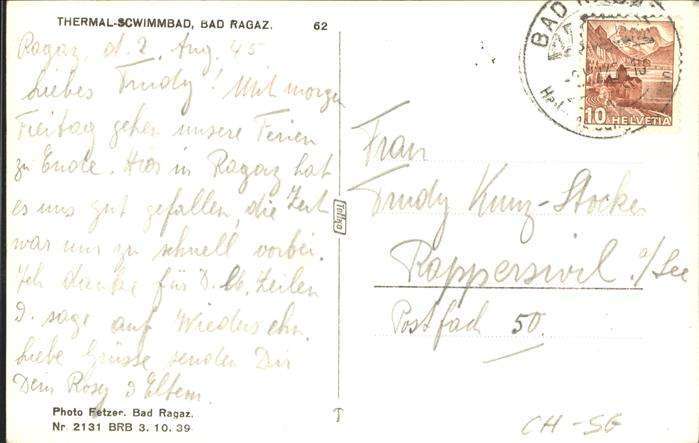 THERMAL-SCHWIMMBAD, BAD RAGAZ. 62
Ragaz, d. 2. Aug. 45
Liebes Trudy! Mit morgen
Freitag gehen unsere Ferien
zu Ende. Hier in Ragaz hat
es uns gut gefallen, die Zeit
war nur zu schnell vorbei.
Ich danke für D. lb. Zeilen
&. sage auf Wiedersehn.
Liebe Grüsse senden Dir
Dein Rosy & Eltern.
Photo Fetzer. Bad Ragaz.
Nr 2131 BRB 3. 10. 39
BAD
10 HELVETIA
Frau
Trudy Kunz-Stocker
Rapperswil a/See
Postfach 50.
CH-SG